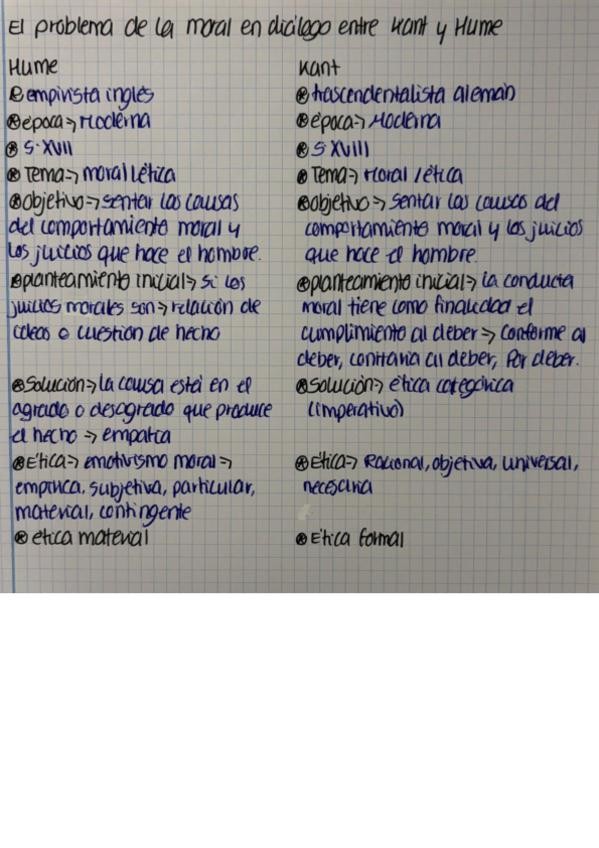 El problema de la moral en diálogo entre Kant y Hume
Hume
empirista inglés
época => Moderna
S. XVII
Tema => moral/ética
objetivo => sentar las causas
del comportamiento moral y
los juicios que hace el hombre.
planteamiento inicial => si los
juicios morales son => relación de
ideas o cuestión de hecho
Solución => la causa está en el
agrado o desagrado que produce
el hecho => empatía
Ética => emotivismo moral =>
empírica, subjetiva, particular,
material, contingente
ética material
Kant
trascendentalista alemán
época => Moderna
S XVIII
Tema => Moral/ética
objetivo => sentar las causas del
comportamiento moral y los juicios
que hace el hombre.
planteamiento inicial => la conducta
moral tiene como finalidad el
cumplimiento al deber => conforme al
deber, contraria al deber, Por deber.
Solución => ética categórica
(imperativo)
Ética => Racional, objetiva, universal,
necesaria
Ética formal